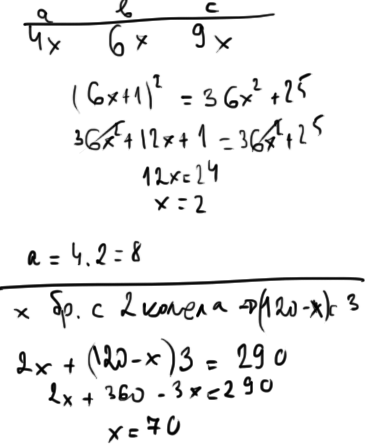 a b c
4x 6x 9x
(6x+1)² = 36x² + 25
36x² + 12x + 1 = 36x² + 25
12x = 24
x = 2
a = 4.2 = 8
x бр. с 2 колела ⇒ (120-x) с 3
2x + (120-x)3 = 290
2x + 360 - 3x = 290
x = 70